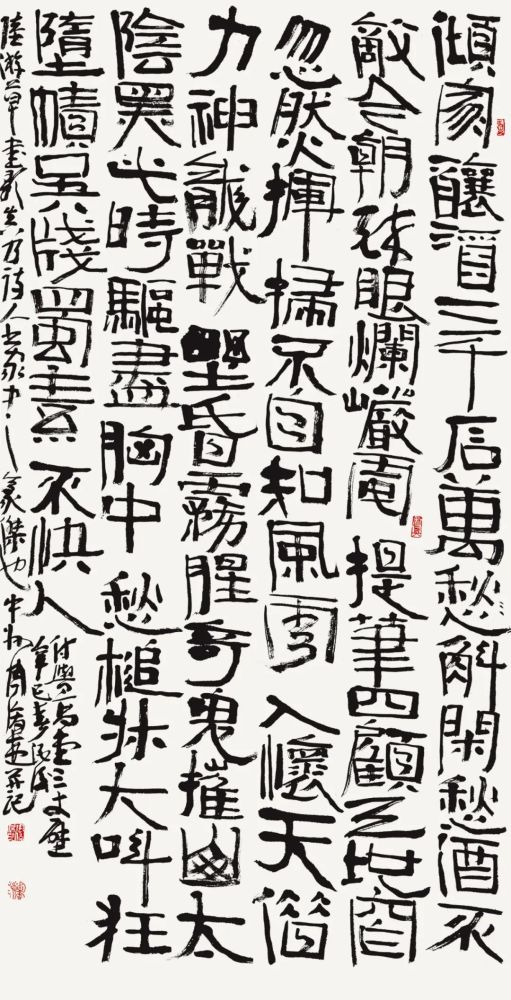 傾家釀酒三千石萬愁斛閑愁酒不
敵今朝醉眼爛巖電提筆四顧天地窄
忽然揮掃不自知風雲入懷天借
力神龍戰野昏霧腥奇鬼摧太
陰黑此時驅盡胸中愁槌牀大叫狂
墮幘吳牋蜀素不快人
付與高堂三丈壁
辛巳春
陸游草書歌乃詩人書家中之豪傑也